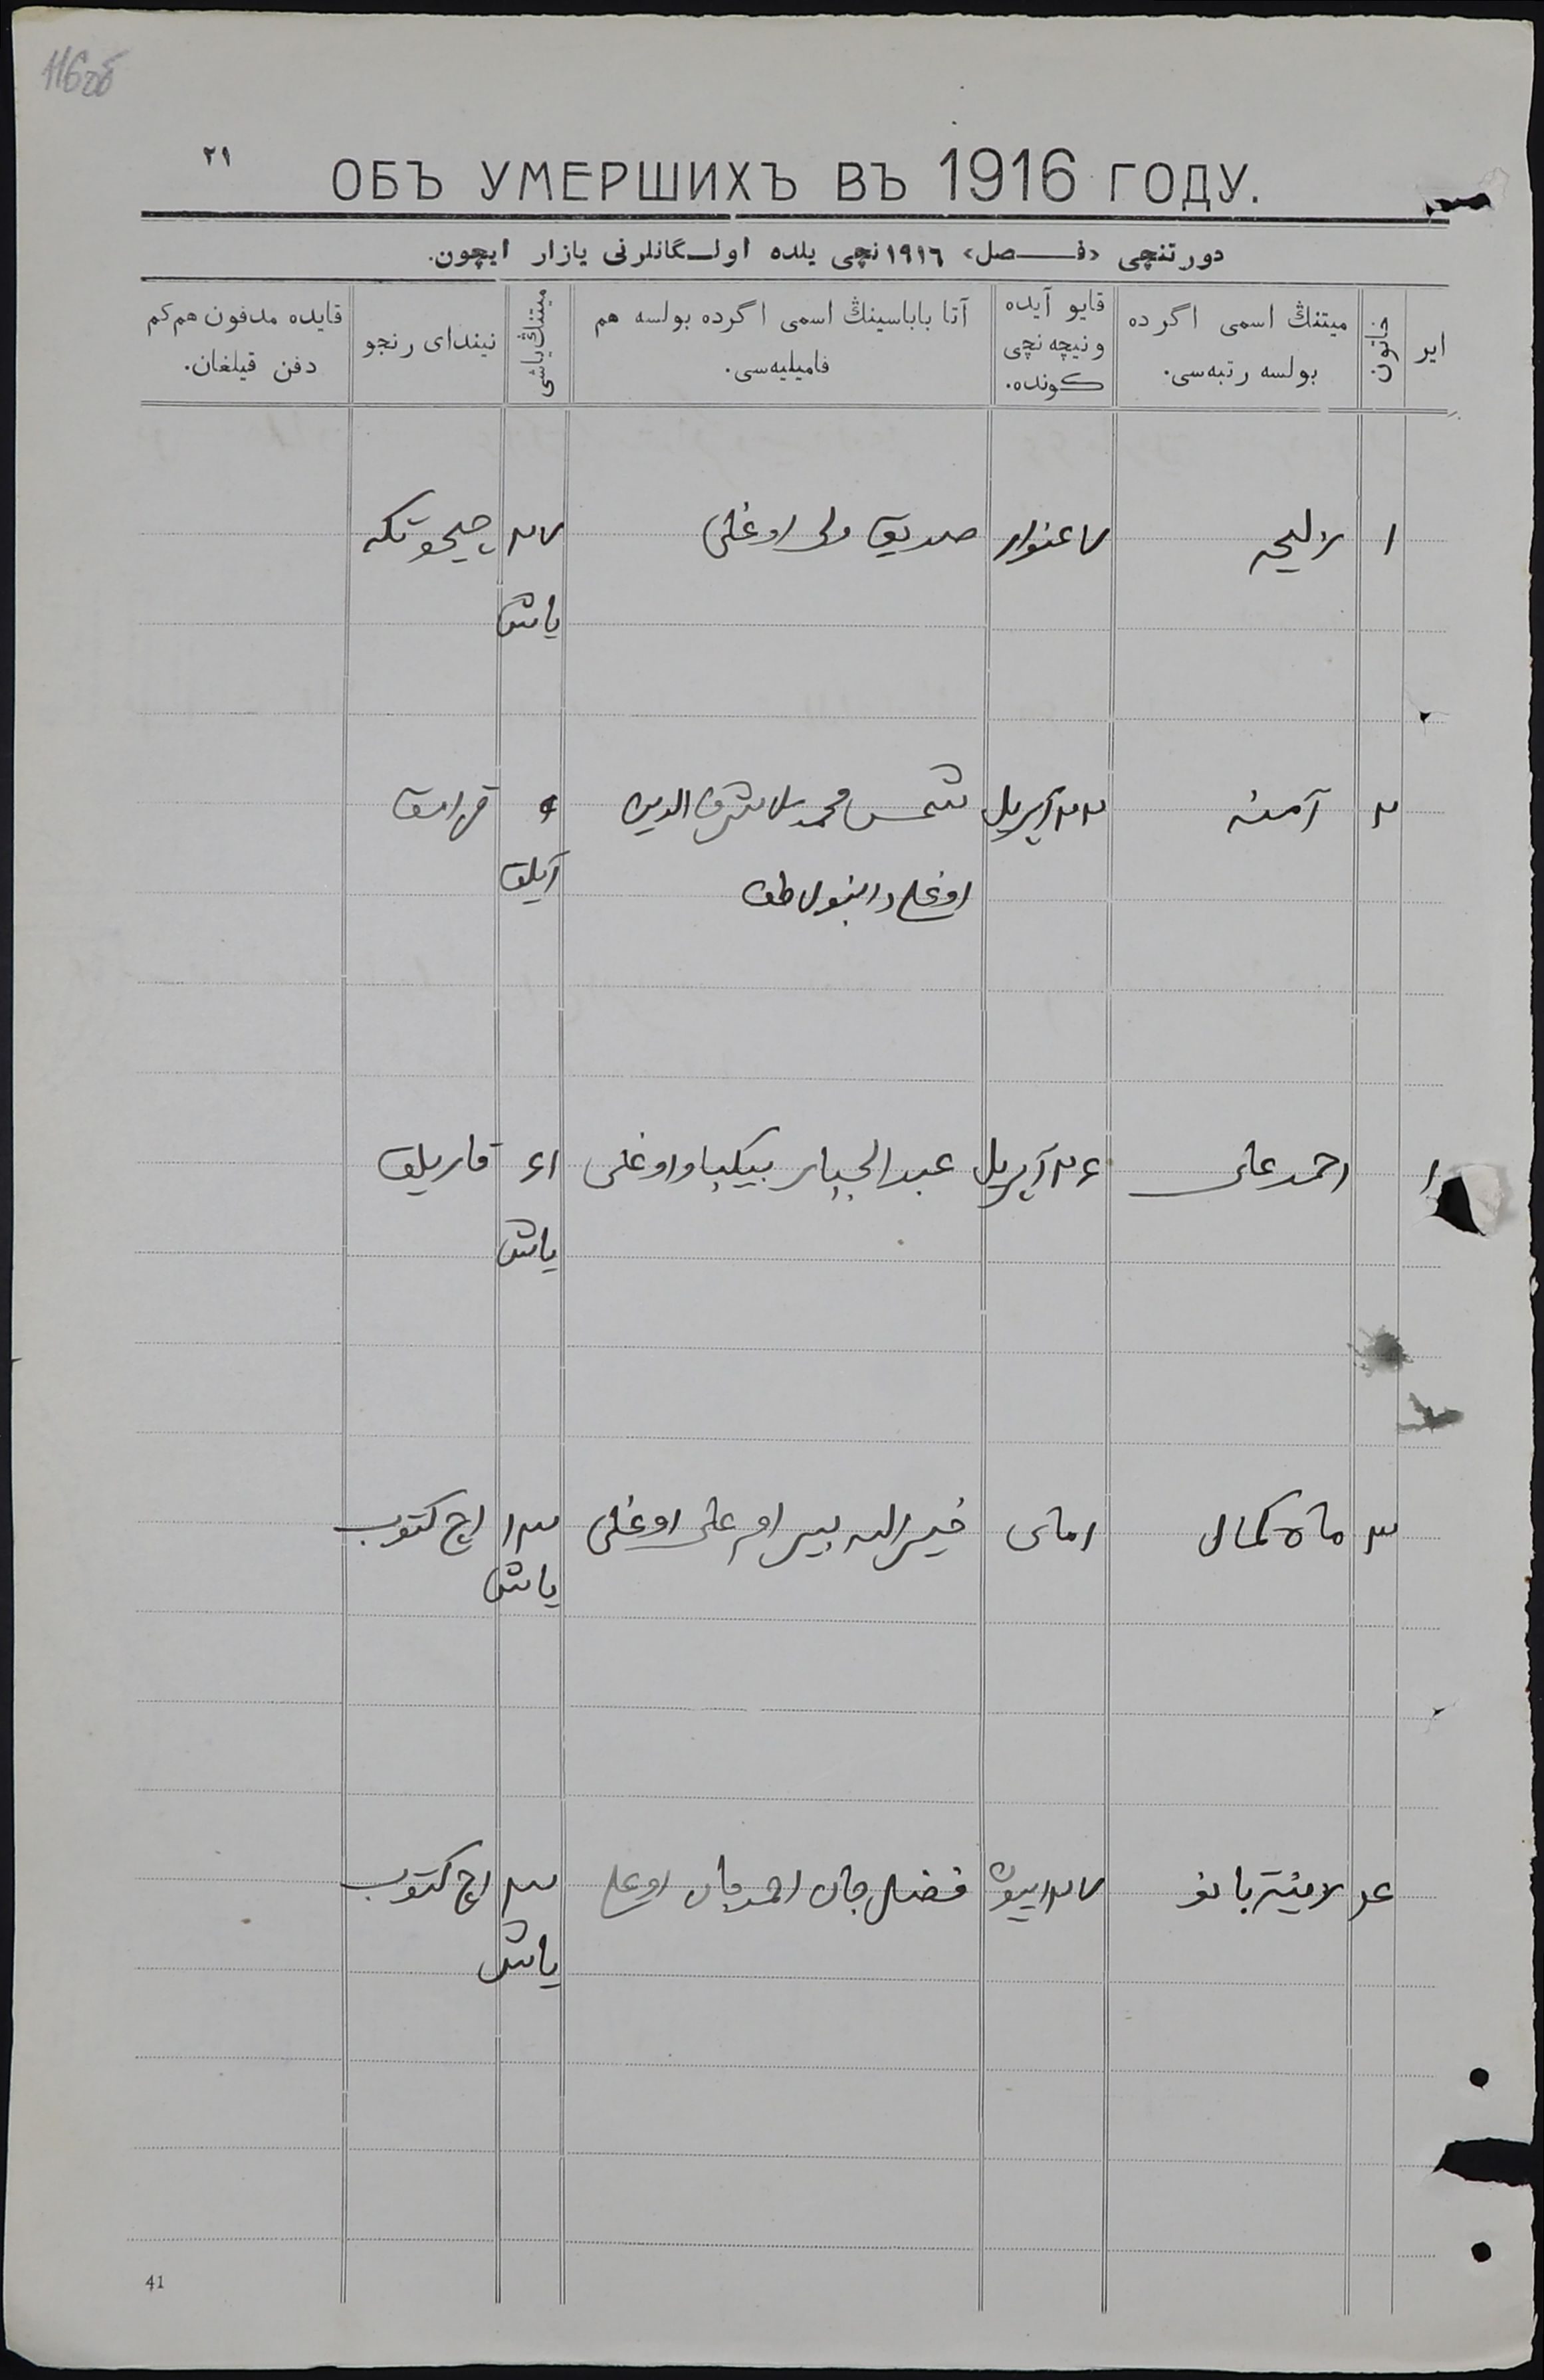 116 об
٢١
ОБЪ УМЕРШИХЪ ВЪ 1916 ГОДУ.
دورتنچی «فـــصل» ١٩١٦نچی یلده اولـگانلرنی یازار ایچون.
ایر
خاتون
میتنڭ اسمی اگرده
بولسه رتبه‌سی.
قایو آیده
ونیچه نچی
کونده.
آتا باباسینڭ اسمی اگرده بولسه هم
فامیلیه‌سی.
میتنڭ یاشی
نیندای رنجو
قایده مدفون هم کم
دفن قیلغان.
١ ٧ غنوار صدیق ولی اوغلی ٢٧ چیحوتکه
یاش
٢ آمنه ٢٢ آپریل شمس محمد شرف الدین ٩
اوغلی آیلق
١ احمد علی ٢٤ آپریل عبد الجبار بیکباو اوغلی ٤١ قاریلق
یاش
٣ ماه کمال ١ مای خیرالله بیرام علی اوغلی ١٣ اچ کتوب
یاش
٤ بانو ٢٧ فضل جان احمد جان اوغلی ٣ اچ کتوب
یاش
41